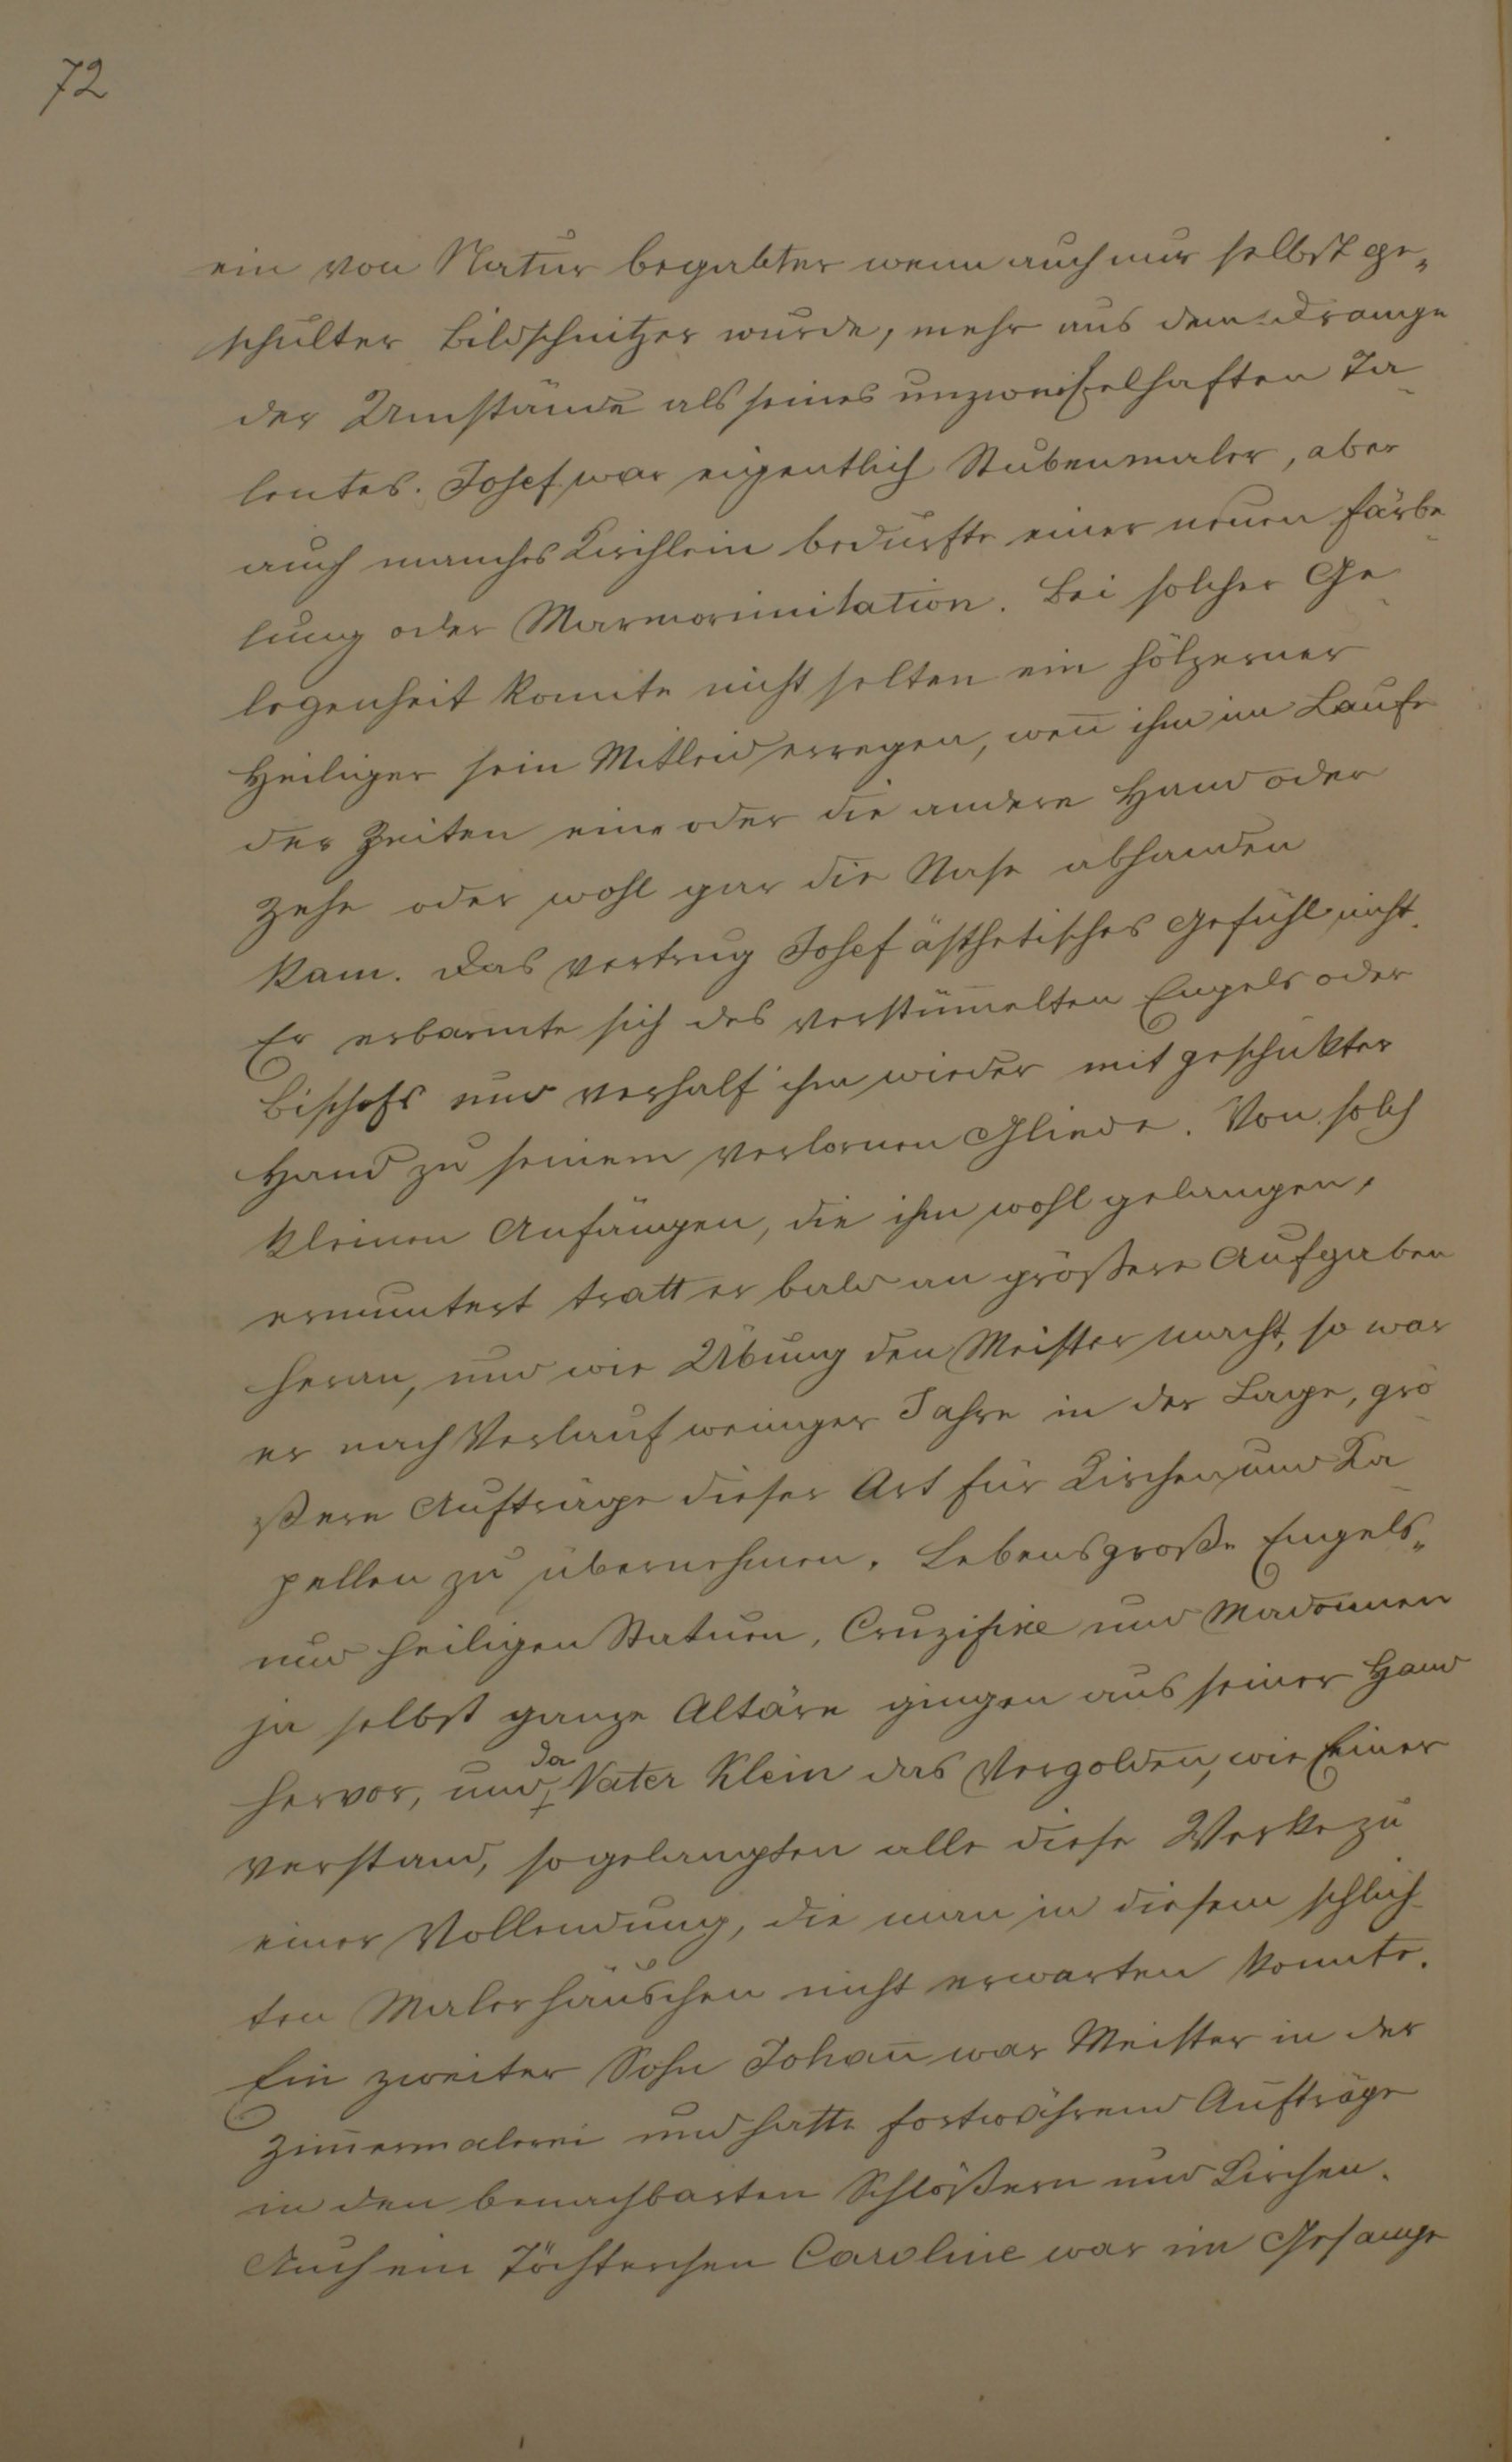 72
ein von Natur begabter wenn auch nur selbst ge„
schulter Bildschnitzer wurde, mehr aus dem Drange
der Umstände als seines unzweifelhaften Ta-
lentes. Josef war eigentlich Stubenmaler, aber
auch manches Kirchlein bedurfte einer neuen Färbe-
lung oder Marmorimitation. Bei solcher Ge-
legenheit konnte nicht selten ein hölzerner
Heiliger sein Mitleid erregen, wen̄ ihm im Laufe
der Zeiten eine oder die andere Hand oder
Zehe oder wohl gar die Nase abhanden
kam. Das vertrug Josef ästhetisches Gefühl nicht.
Er erbarmte sich des verstüm̄elten Engels oder
Bischofs und verhalf ihm wieder mit geschikter
Hand zu seinem verlornen Gliede. Von solch
kleinen Anfängen, die ihm wohl gelangen,
ermuntert tratt er bald an größere Aufgaben
heran, und wie Übung den Meister macht, so war
er nach Verlauf weniger Jahre in der Lage, grö-
ßere Aufträge dieser Art für Kirchen und Ka-
pellen zu übernehmen. Lebensgroße Engels„
und heiligen Statuen, Cruzifixe und Madon̄en
ja selbst ganze Altäre gingen aus seiner Hand
hervor, und da Vater Klein das Vergolden, wie Einer
verstand, so gelangten alle diese Werke zu
einer Vollendung, die man in diesem schlich-
ten Malerhäuschen nicht erwarten konnte.
Ein zweiter Sohn Johan̄ war Meister in der
Zim̄ermalerei und hatte fortwährend Aufträge
in den benachbarten Schlößern und Kirchen.
Auch ein Töchterchen Caroline war im Gesange